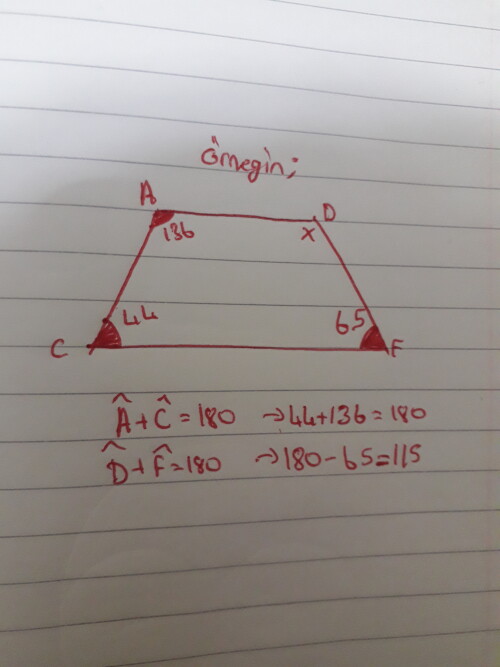 Örneğin;
A
D
136
x
44
65
C
F
Â+Ĉ=180 →44+136=180
D̂+F̂=180 →180-65=115